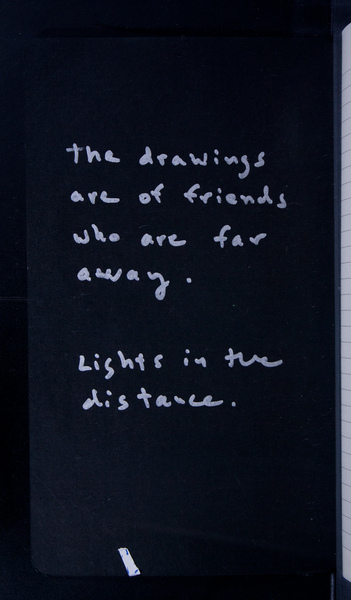 The drawings
are of friends
who are far
away.
Lights in the
distance.